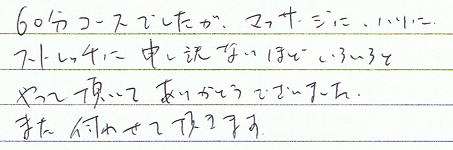 60分コースでしたが、マッサージに、ハリに
ストレッチに申し訳ないほどいろいろと
やって頂いてありがとうございました.
また伺わせて頂きます.